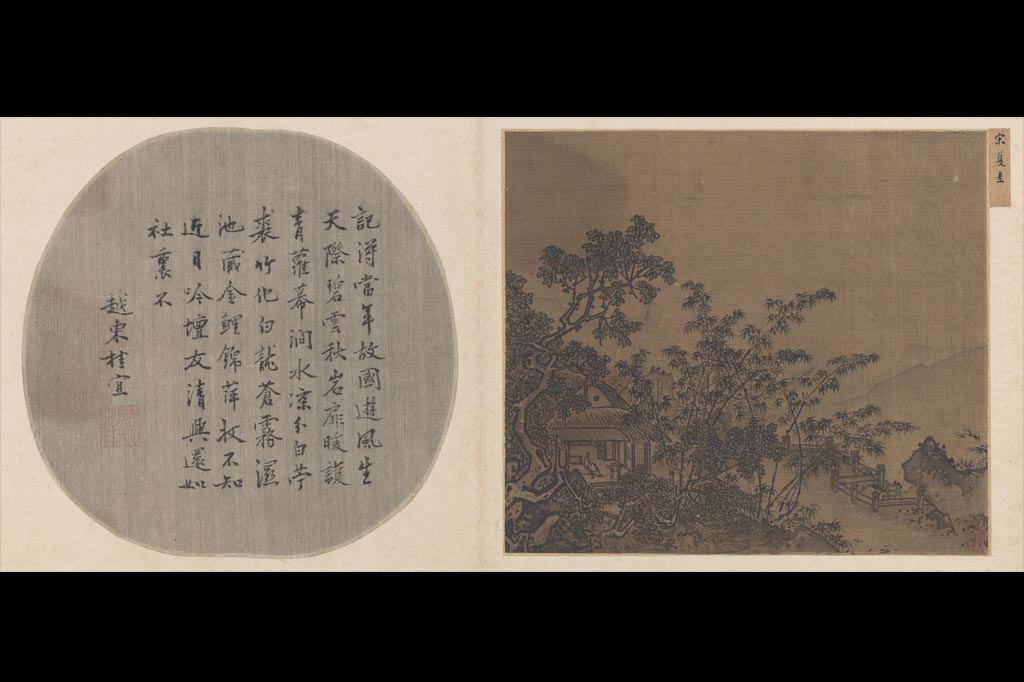 宋夏圭
記淂當年故國遊風生
天際碧雲秋岩扉暖護
青蘿幕澗水凉分白苧
裘竹化白龍蒼霧濕
池藏金鯉錦萍收不知
近日吟壇友清興還如
社裏不
越東桂宜